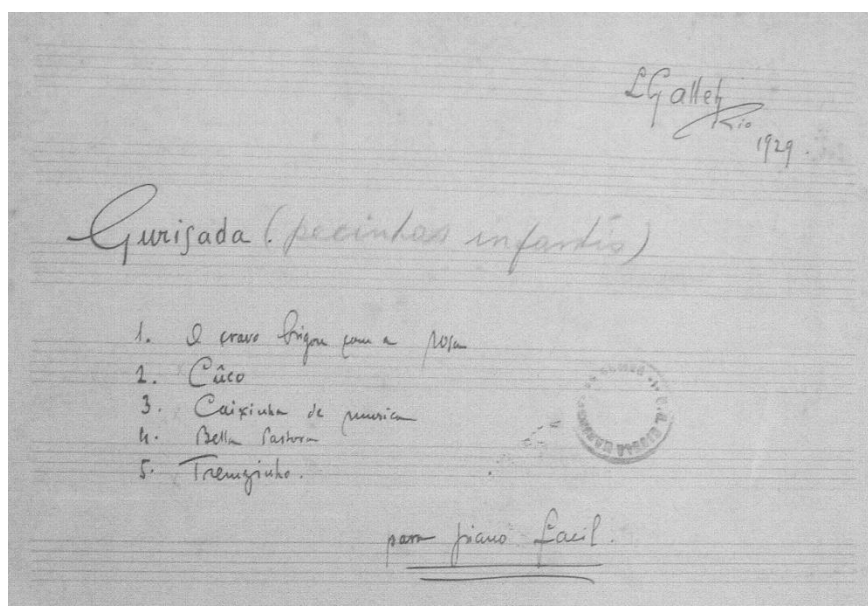 LGallet
Rio
1929.
Gurisada. (pecinhas infantís)
1. O cravo brigou com a rosa
2. Cûco
3. Caixinha de musica
4. Bella Pastora
5. Tremzinho.
para piano facil.